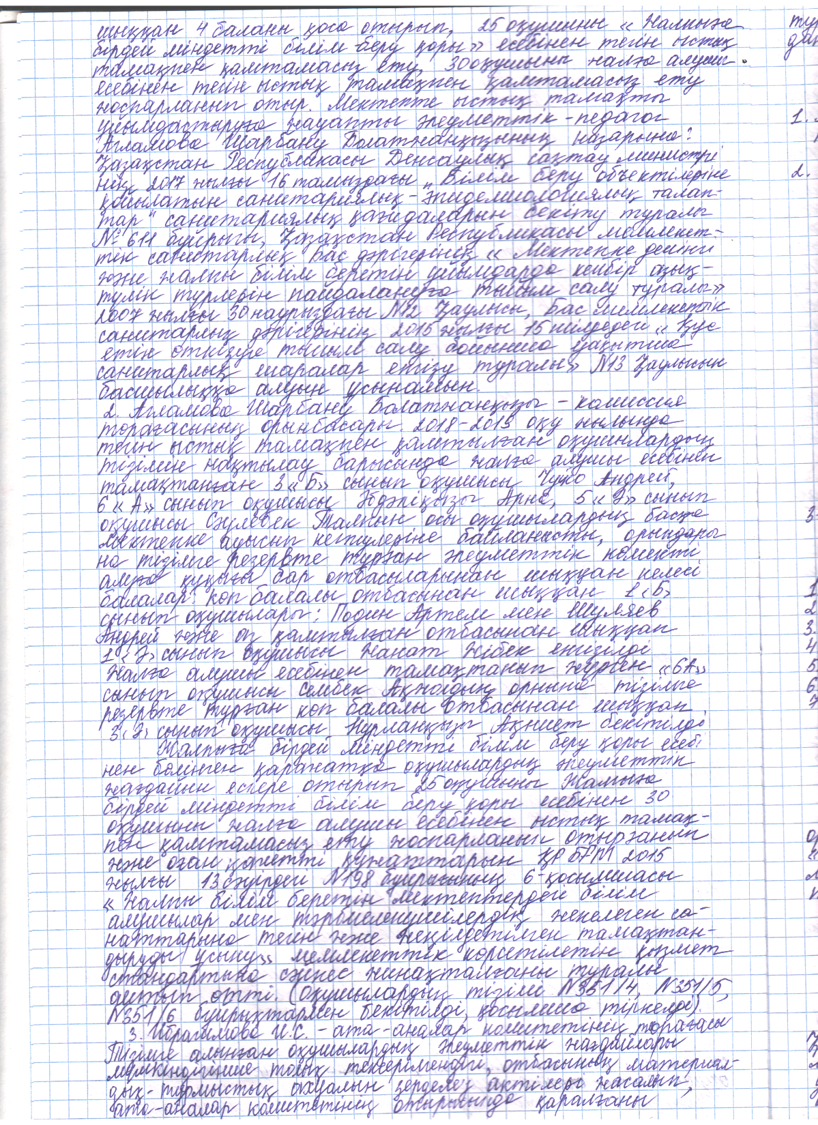 шыққан 4 баланы қоса отырып, 25 оқушыны «Жалпыға
бірдей міндетті білім беру қоры» есебінен тегін ыстық
тамақпен қамтамасыз ету, 30 оқушыны жалға алушы
есебінен тегін ыстық тамақпен қамтамасыз ету
жоспарланып отыр. Мектепте ыстық тамақты
ұйымдастыруға жауапты әлеуметтік-педагог
Агламова Шарбану Болатжанқызының назарына:
Қазақстан Республикасы Денсаулық сақтау министрі
нің 2017 жылғы 16 тамыздағы „Білім беру объектілеріне
қойылатын санитариялық-эпидемиологиялық талап-
тар" санитариялық қағидаларын бекіту туралы
№ 611 бұйрығы, Қазақстан Республикасы мемлекет-
тік санитарлық бас дәрігерінің «Мектепке дейінгі
және жалпы білім беретін ұйымдарда кейбір азық-
түлік түрлерін пайдалануға тыйым салу туралы»
2007 жылғы 30 наурыздағы №2 Қаулысы, Бас мемлекеттік
санитарлық дәрігерінің 2015 жылғы 15 шілдедегі «Құс
етін өткізуге тыйым салу бойынша уақытша
санитарлық шаралар енгізу туралы» №13 Қаулысын
басшылыққа алуын ұсынамын.
2. Агламова Шарбану Балатжанқызы - комиссия
төрағасының орынбасары 2018-2019 оқу жылында
тегін ыстық тамақпен қамтылған оқушылардың
тізіміне нақтылау барысында жалға алушы есебінен
тамақтанған 3 «Б» сынып оқушысы Чужо Андрей,
6 «А» сынып оқушысы Әбдәлі қызы Ару, 5 «Ә» сынып
оқушысы Сәулебек Талшын осы оқушылардың басқа
мектепке ауысып кетулеріне байланысты, орындары
на тізімге резервте тұрған әлеуметтік көмекті
алуға құқығы бар отбасыларынан шыққан келесі
балалар: көп балалы отбасынан шыққан 1 «Б»
сынып оқушылары: Подин Артем мен Шуляев
Андрей және аз қамтылған отбасынан шыққан
1 «Ә» сынып оқушысы Жанат Жібек енгізілді
Жалға алушы есебінен тамақтанып жүрген «6А»
сынып оқушысы Сембек Ақжолдың орнына тізімге
резервте тұрған көп балалы отбасынан шыққан
3 «Ә» сынып оқушысы Нұрланқызы Ақниет бекітілді
Жалпыға бірдей міндетті білім беру қоры есебі
нен бөлінген қаражатқа оқушылардың әлеуметтік
жағдайын ескере отырып 25 оқушыны Жалпыға
бірдей міндетті білім беру қоры есебінен 30
оқушыны жалға алушы есебінен ыстық тамақ-
пен қамтамасыз ету жоспарланып отырғанын
және оған қажетті құжаттарын ҚР БҒМ 2015
жылғы 13 сәуірдегі №198 бұйрығының 6-қосымшасы
«Жалпы білім беретін мектептердегі білім
алушылар мен тәрбиеленушілердің жекелеген са-
наттарына тегін және жеңілдетілген тамақтан-
дыруды ұсыну» мемлекеттік көрсетілетін қызмет
стандартына сәйкес жинақталғаны туралы
айтып өтті. (Оқушылардың тізімі №351/4, №351/5,
№351/6 бұйрықтармен бекітілді, қосымша тіркелді).
3. Ибрагимова И.С. - ата-аналар комитетінің төрағасы
Тізімге алынған оқушылардың әлеуметтік жағдайлары
мүмкіндігінше толық тексерілгендігі, отбасының материал-
дық-тұрмыстық ахуалын зерделеу актілері жасалып,
ата-аналар комитетінің отырысында қаралғаны